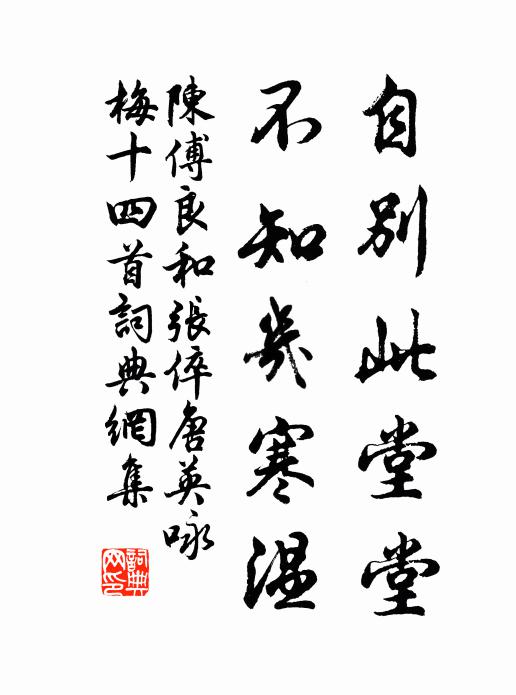 自別此堂堂
不知幾寒溫
陳傅良和張倅唐英咏
梅十四首詞典網集
詞典
网印